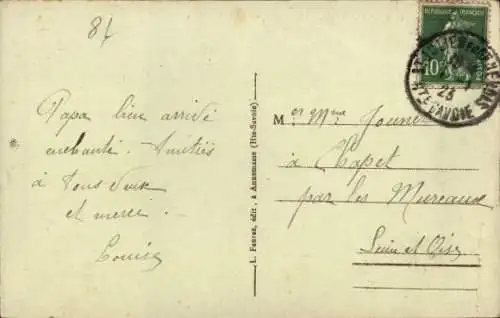 84
Papa bien arrivé
enchanté. Amitiés
à tous deux
et merci.
Louise
L. Favras, édit., à Annemasse (Hte-Savoie)
REPUBLIQUE FRANÇAISE
10
23
HTE SAVOIE
M er Mme
à Chapet
par les Mureaux
Seine et Oise